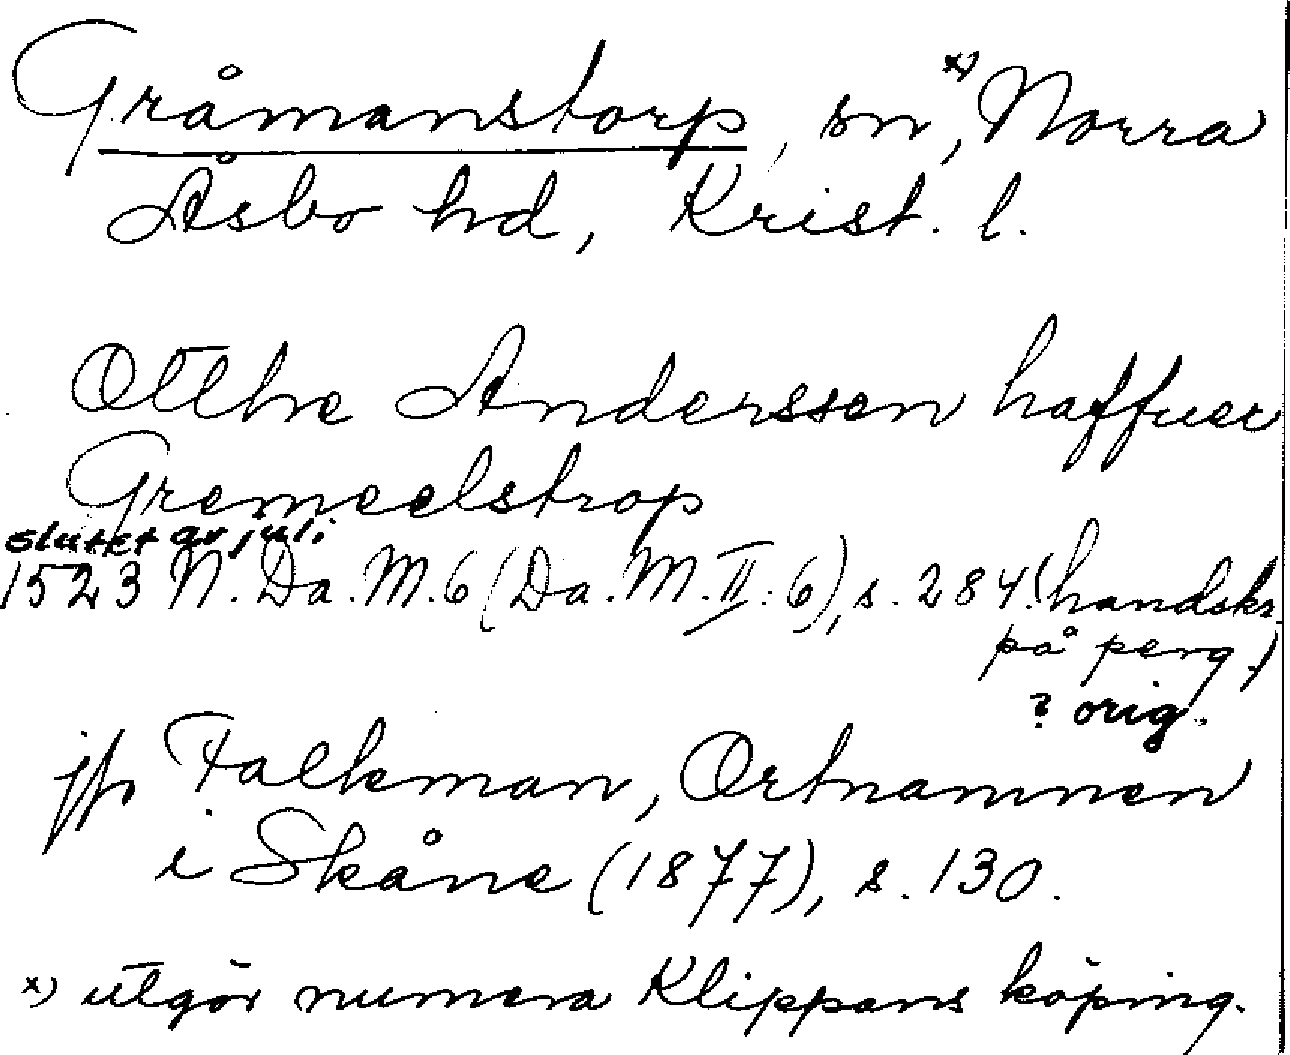 Gråmanstorp, sn x), Norra
Åsbo hd, Krist. l.
Otthe Anderssen haffuer
Gremeelstrop
slutet av juli
1523 N. Da. M. 6 (Da. M. II: 6), s. 284. (handskr.
på perg.)
? orig.
jfr Falkman, Ortnamnen
i Skåne (1877), s. 130.
x) utgör numera Klippans köping.